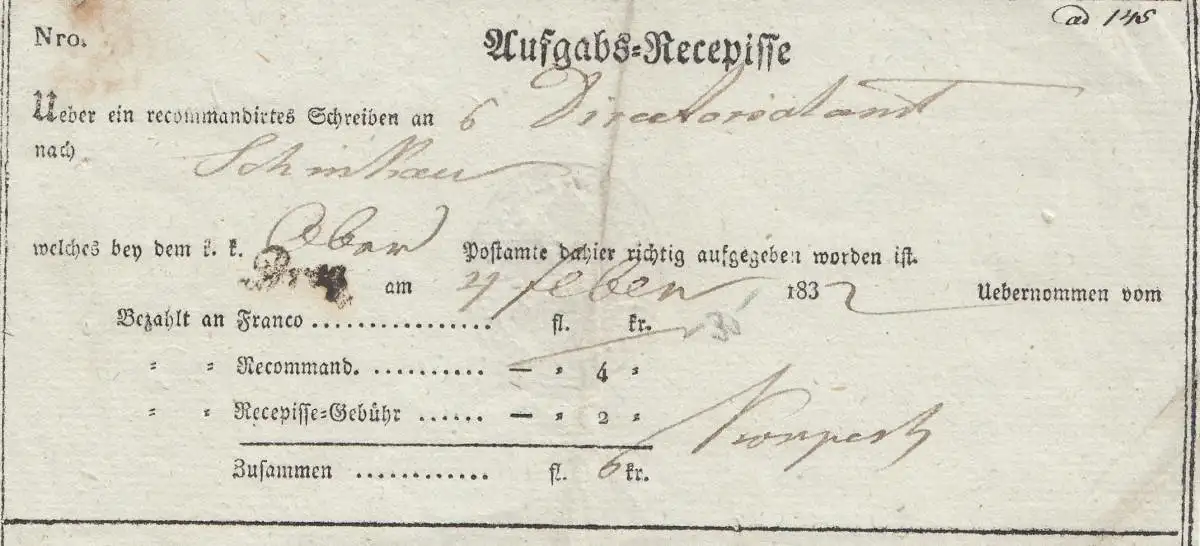 ad 145
Nro.
Aufgabs-Recepisse
Ueber ein recommandirtes Schreiben an 6 Directorialamt
nach Schinkau
welches bey dem k. k. Ober Postamte dahier richtig aufgegeben worden ist.
Prag am 4 Feber 1832 Uebernommen vom
Bezahlt an Franco ................ fl. kr.
" " Recommand. .......... — " 4 "
" " Recepisse-Gebühr ...... — " 2 "
Zusammen ............ fl. 6 kr.